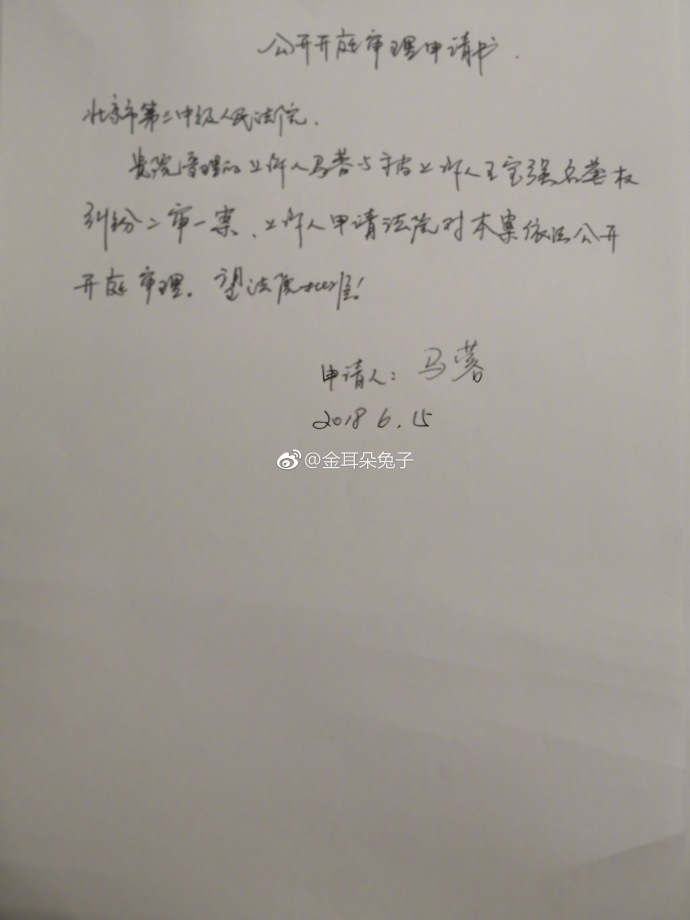 公开开庭审理申请书.
北京市第二中级人民法院.
贵院审理的上诉人马蓉与被上诉人王宝强名誉权
纠纷二审一案、上诉人申请法院对本案依法公开
开庭审理。望法院批准!
申请人：马蓉
2018 6.15
@金耳朵兔子